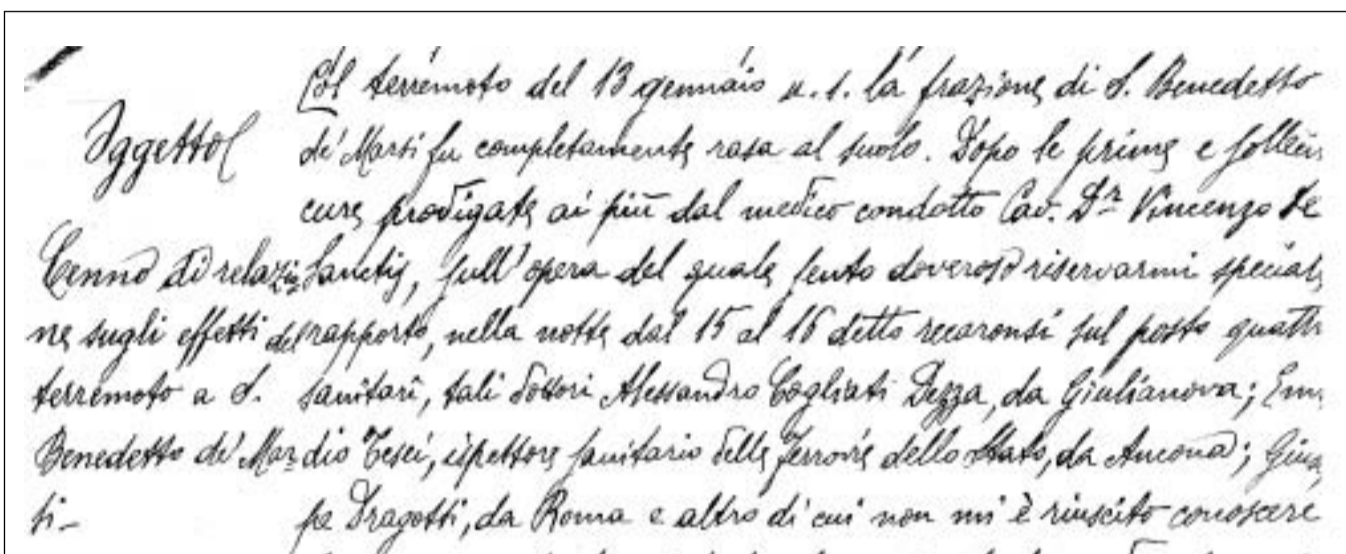 Oggetto
Cenno di relazio-
ne sugli effetti del
terremoto a S.
Benedetto de' Mar-
si-
Col terremoto del 13 gennaio u. s. la frazione di S. Benedetto
de' Marsi fu completamente rasa al suolo. Dopo le prime e
cure prodigate ai più dal medico condotto Cav. Dr Vincenzo De
Sanctis, sull'opera del quale sento doveroso riservarmi special
rapporto, nella notte dal 15 al 16 detto recaronsi sul posto quattr
sanitari, tali dottori Alessandro Cogliati Dezza, da Giulianova;
dio Tesei, ispettore sanitario delle Ferrovie dello Stato, da Ancona; Gius
pe Dragotti, da Roma e altro di cui non mi è riuscito conoscere